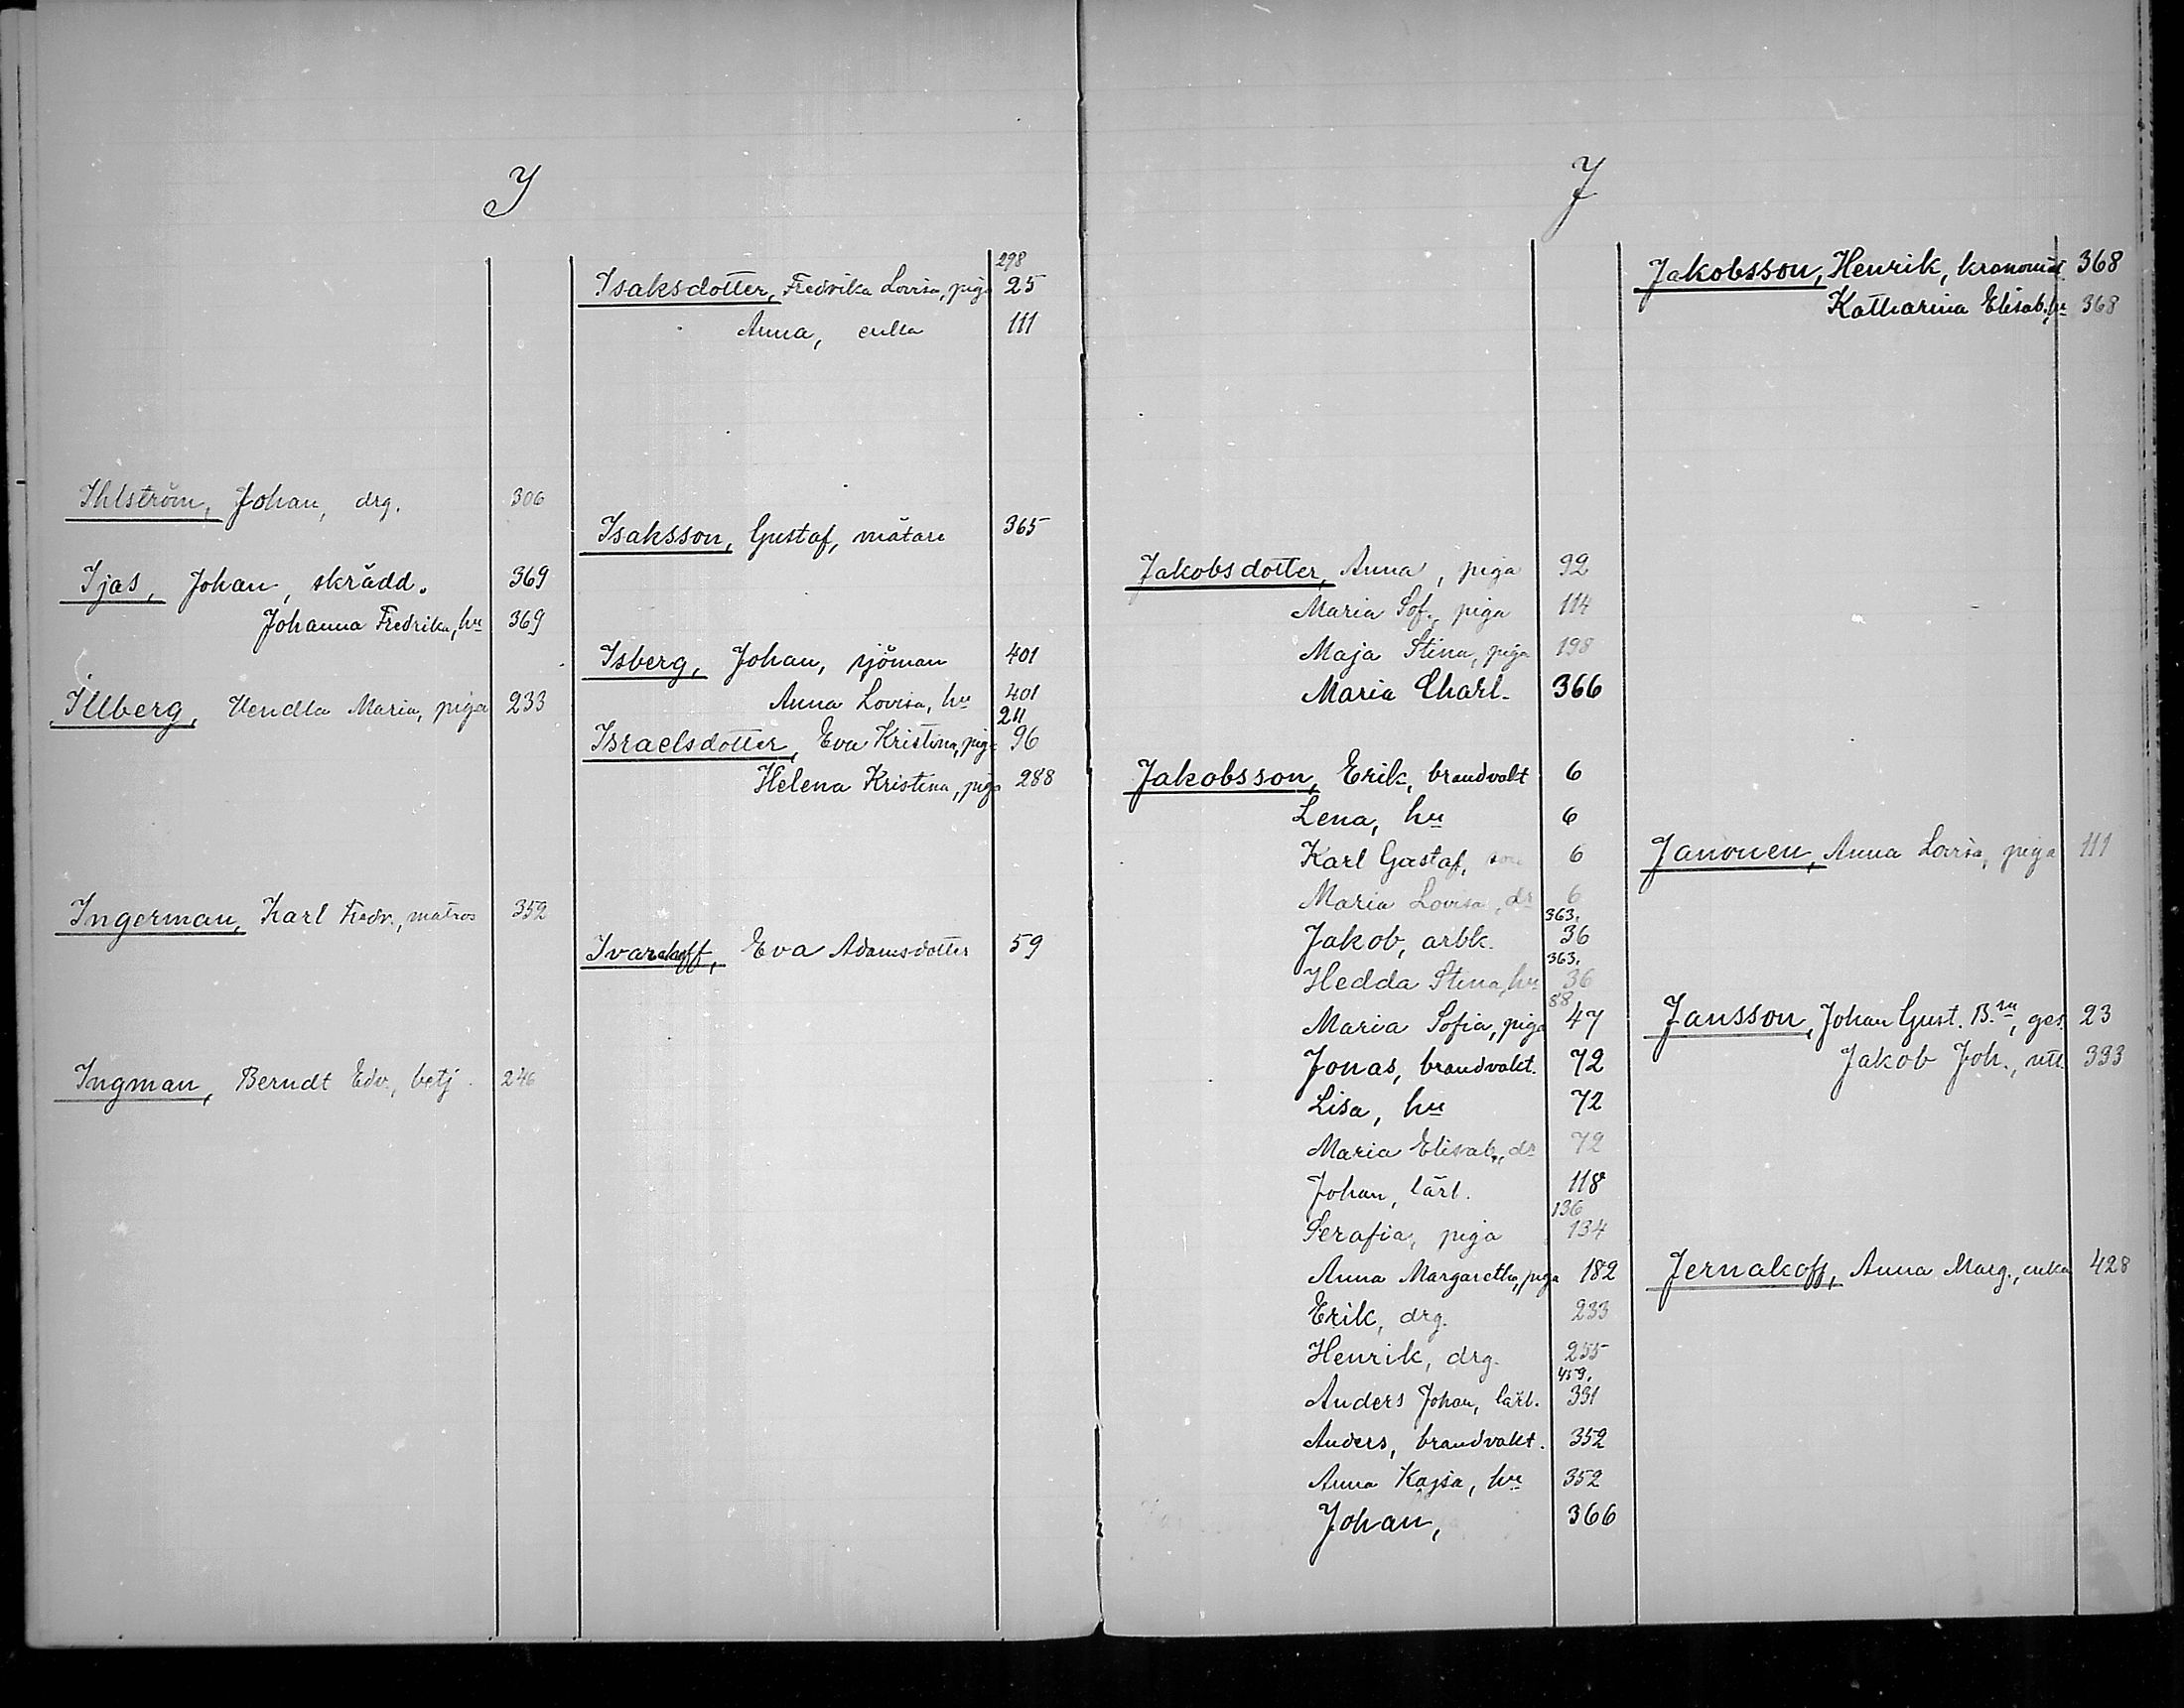 I
Ihlström, Johan, drg. 306
Ijas, Johan, skrädd. 369
Johanna Fredrika, hu 369
Illberg, Hendla Maria, piga 233
Ingerman, Karl Fredr., matros 352
Ingman, Berndt Edv., betj. 246
298
Isaksdotter, Fredrika Lovisa, piga 25
Anna, enka 111
Isaksson, Gustaf, mätare 365
Isberg, Johan, sjöman 401
Anna Lovisa, hu 401
211
Israelsdotter, Eva Kristina, piga 96
Helena Kristina, piga 288
Eva Adamsdotter 59
J
Jakobsdotter, Anna, piga 92
Maria Sof., piga 114
Maja Stina, piga 198
Maria Charl. 366
Jakobsson, Erik, brandvakt 6
Lena, hu 6
Karl Gustaf, son 6
Maria Lovisa, dr 6
363.
Jakob, arbk. 36
363.
Hedda Stina, hu 36
88
Maria Sofia, piga 47
Jonas, brandvakt. 72
Lisa, hu 72
Maria Elisab., dr 72
Johan, lärl. 118
136
Serafia, piga 134
Anna Margaretha, piga 182
Erik, drg. 233
Henrik, drg. 255
459.
Anders Johan, lärl. 331
Anders, brandvakt. 352
Anna Kajsa, hu 352
Johan, 366
Jakobsson, Henrik, 368
Katharina Elisab., hu 368
Janonen, Anna Lovisa, piga 111
Jansson, Johan Gust. B.sn, ges. 23
Jakob Joh., 393
Jernakoff, Anna Marg., enka 428